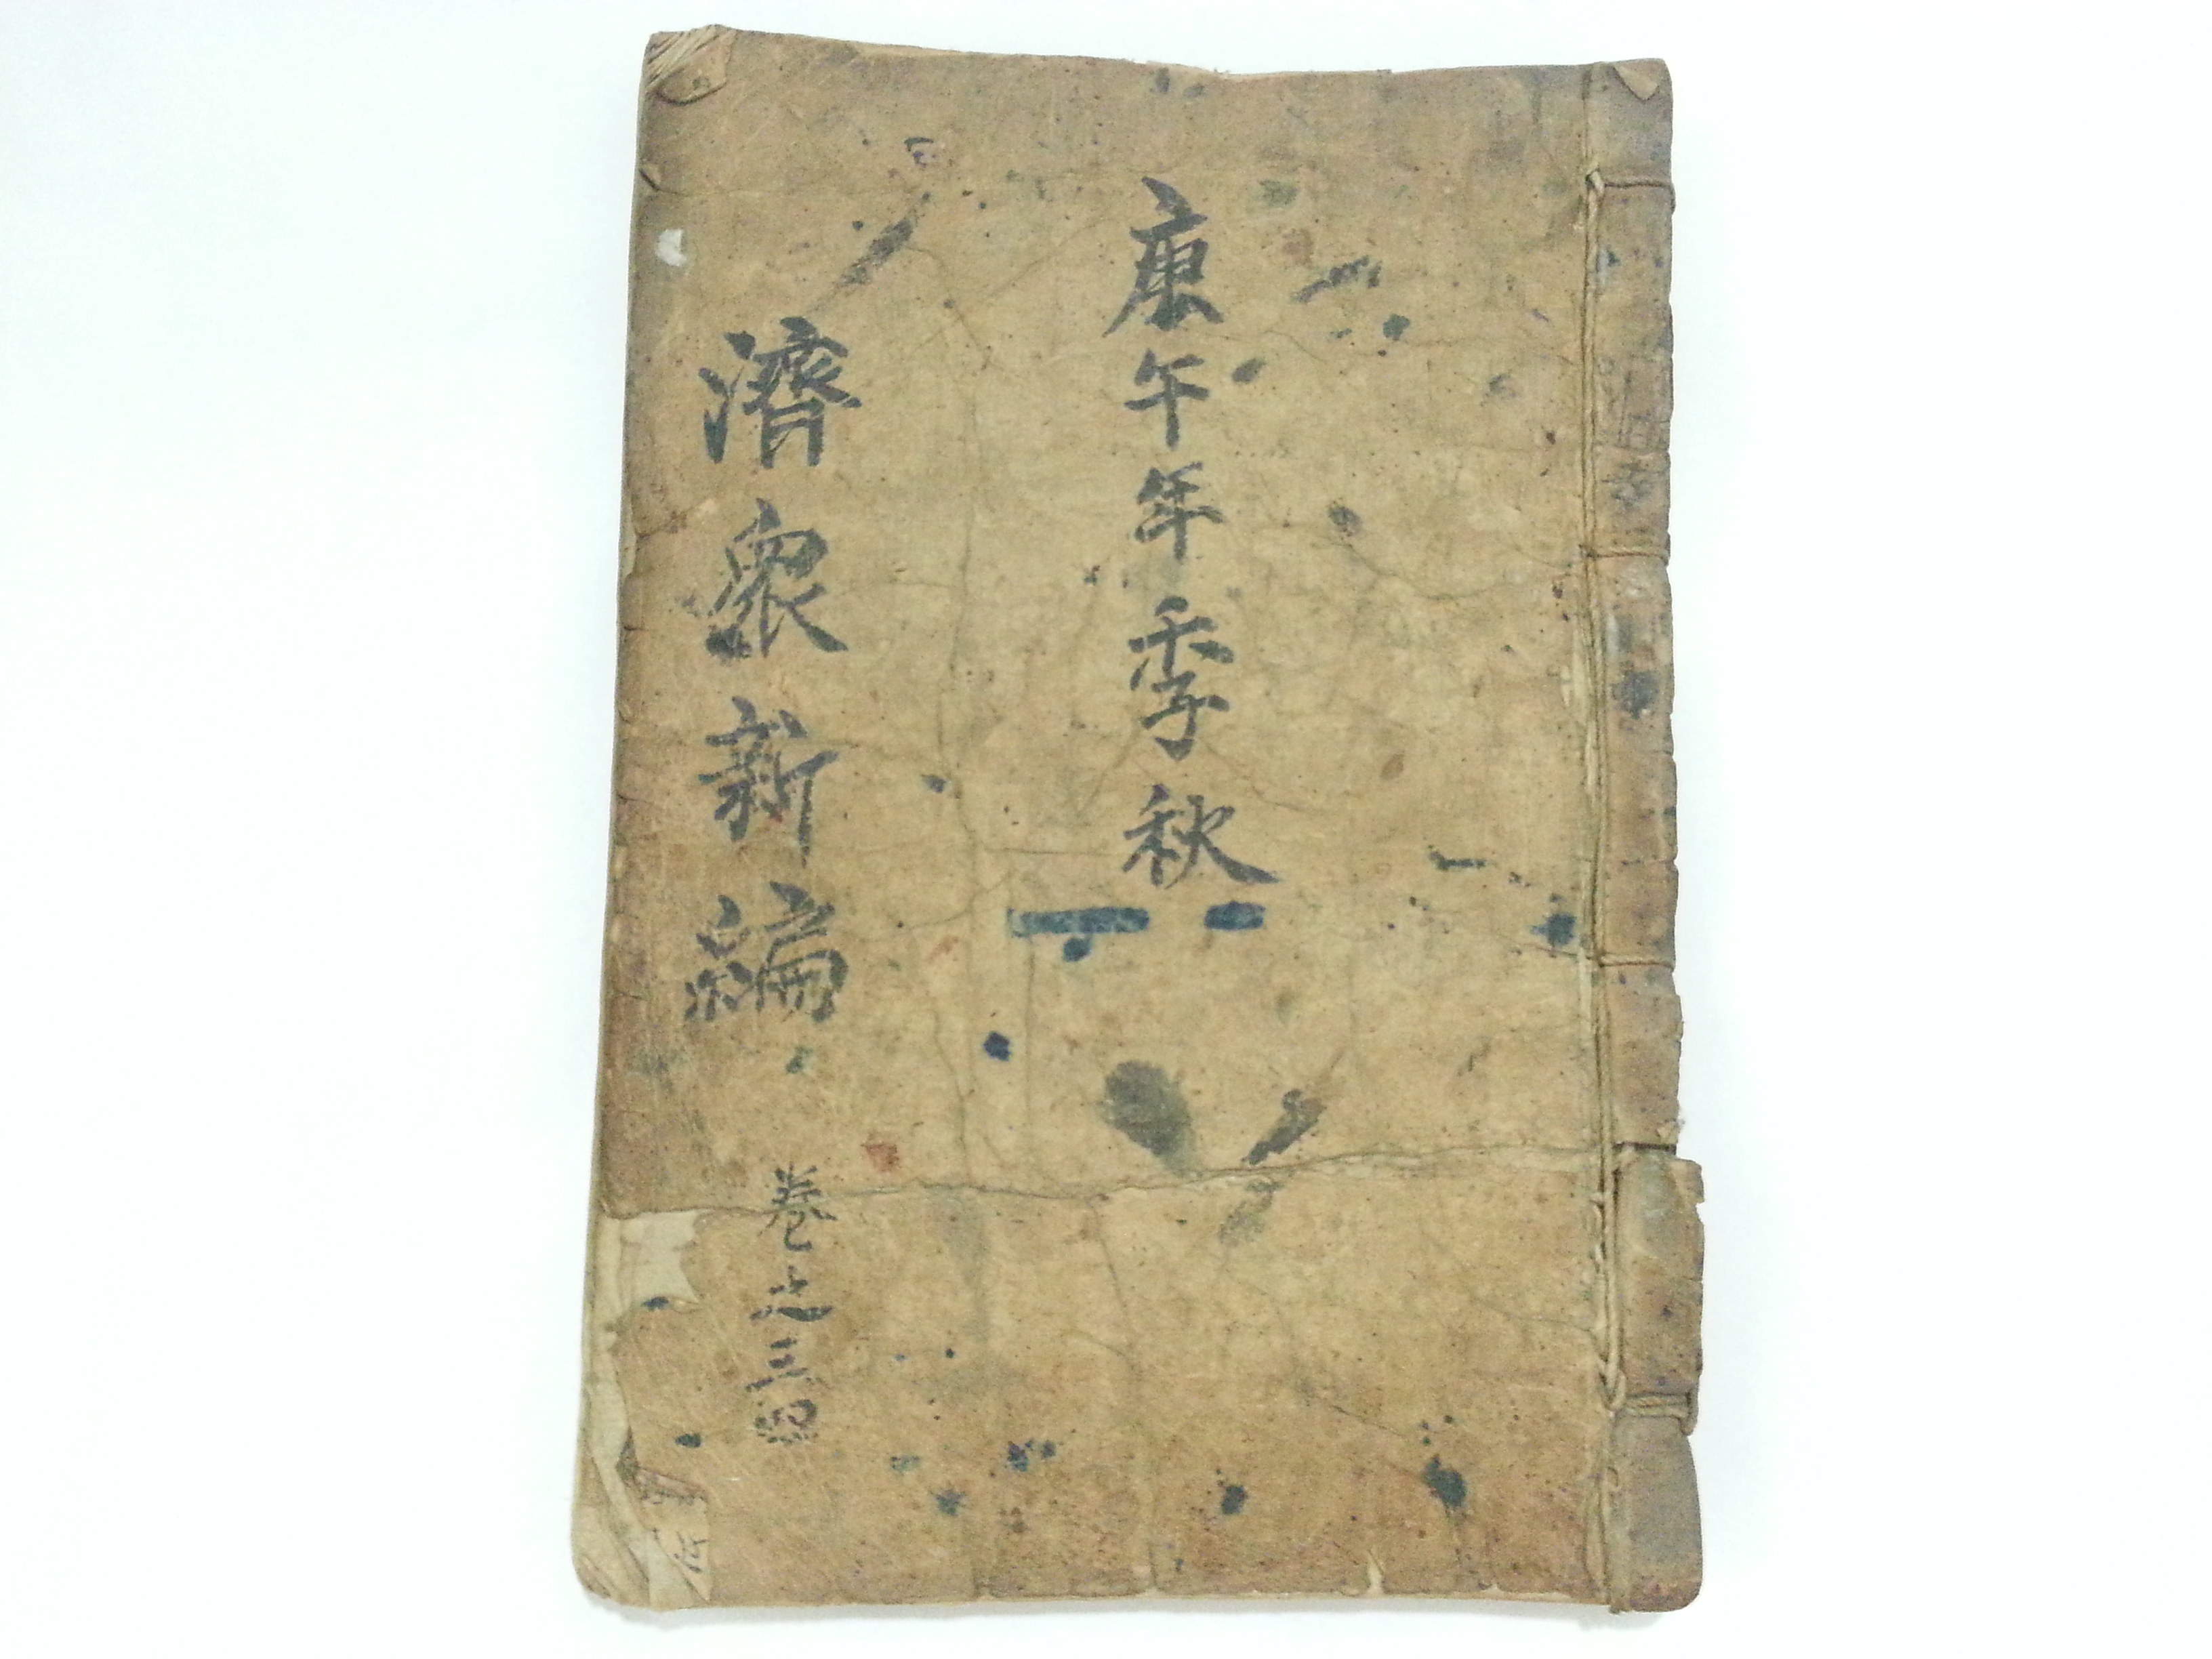 庚午年季秋
濟衆新編
卷之三四